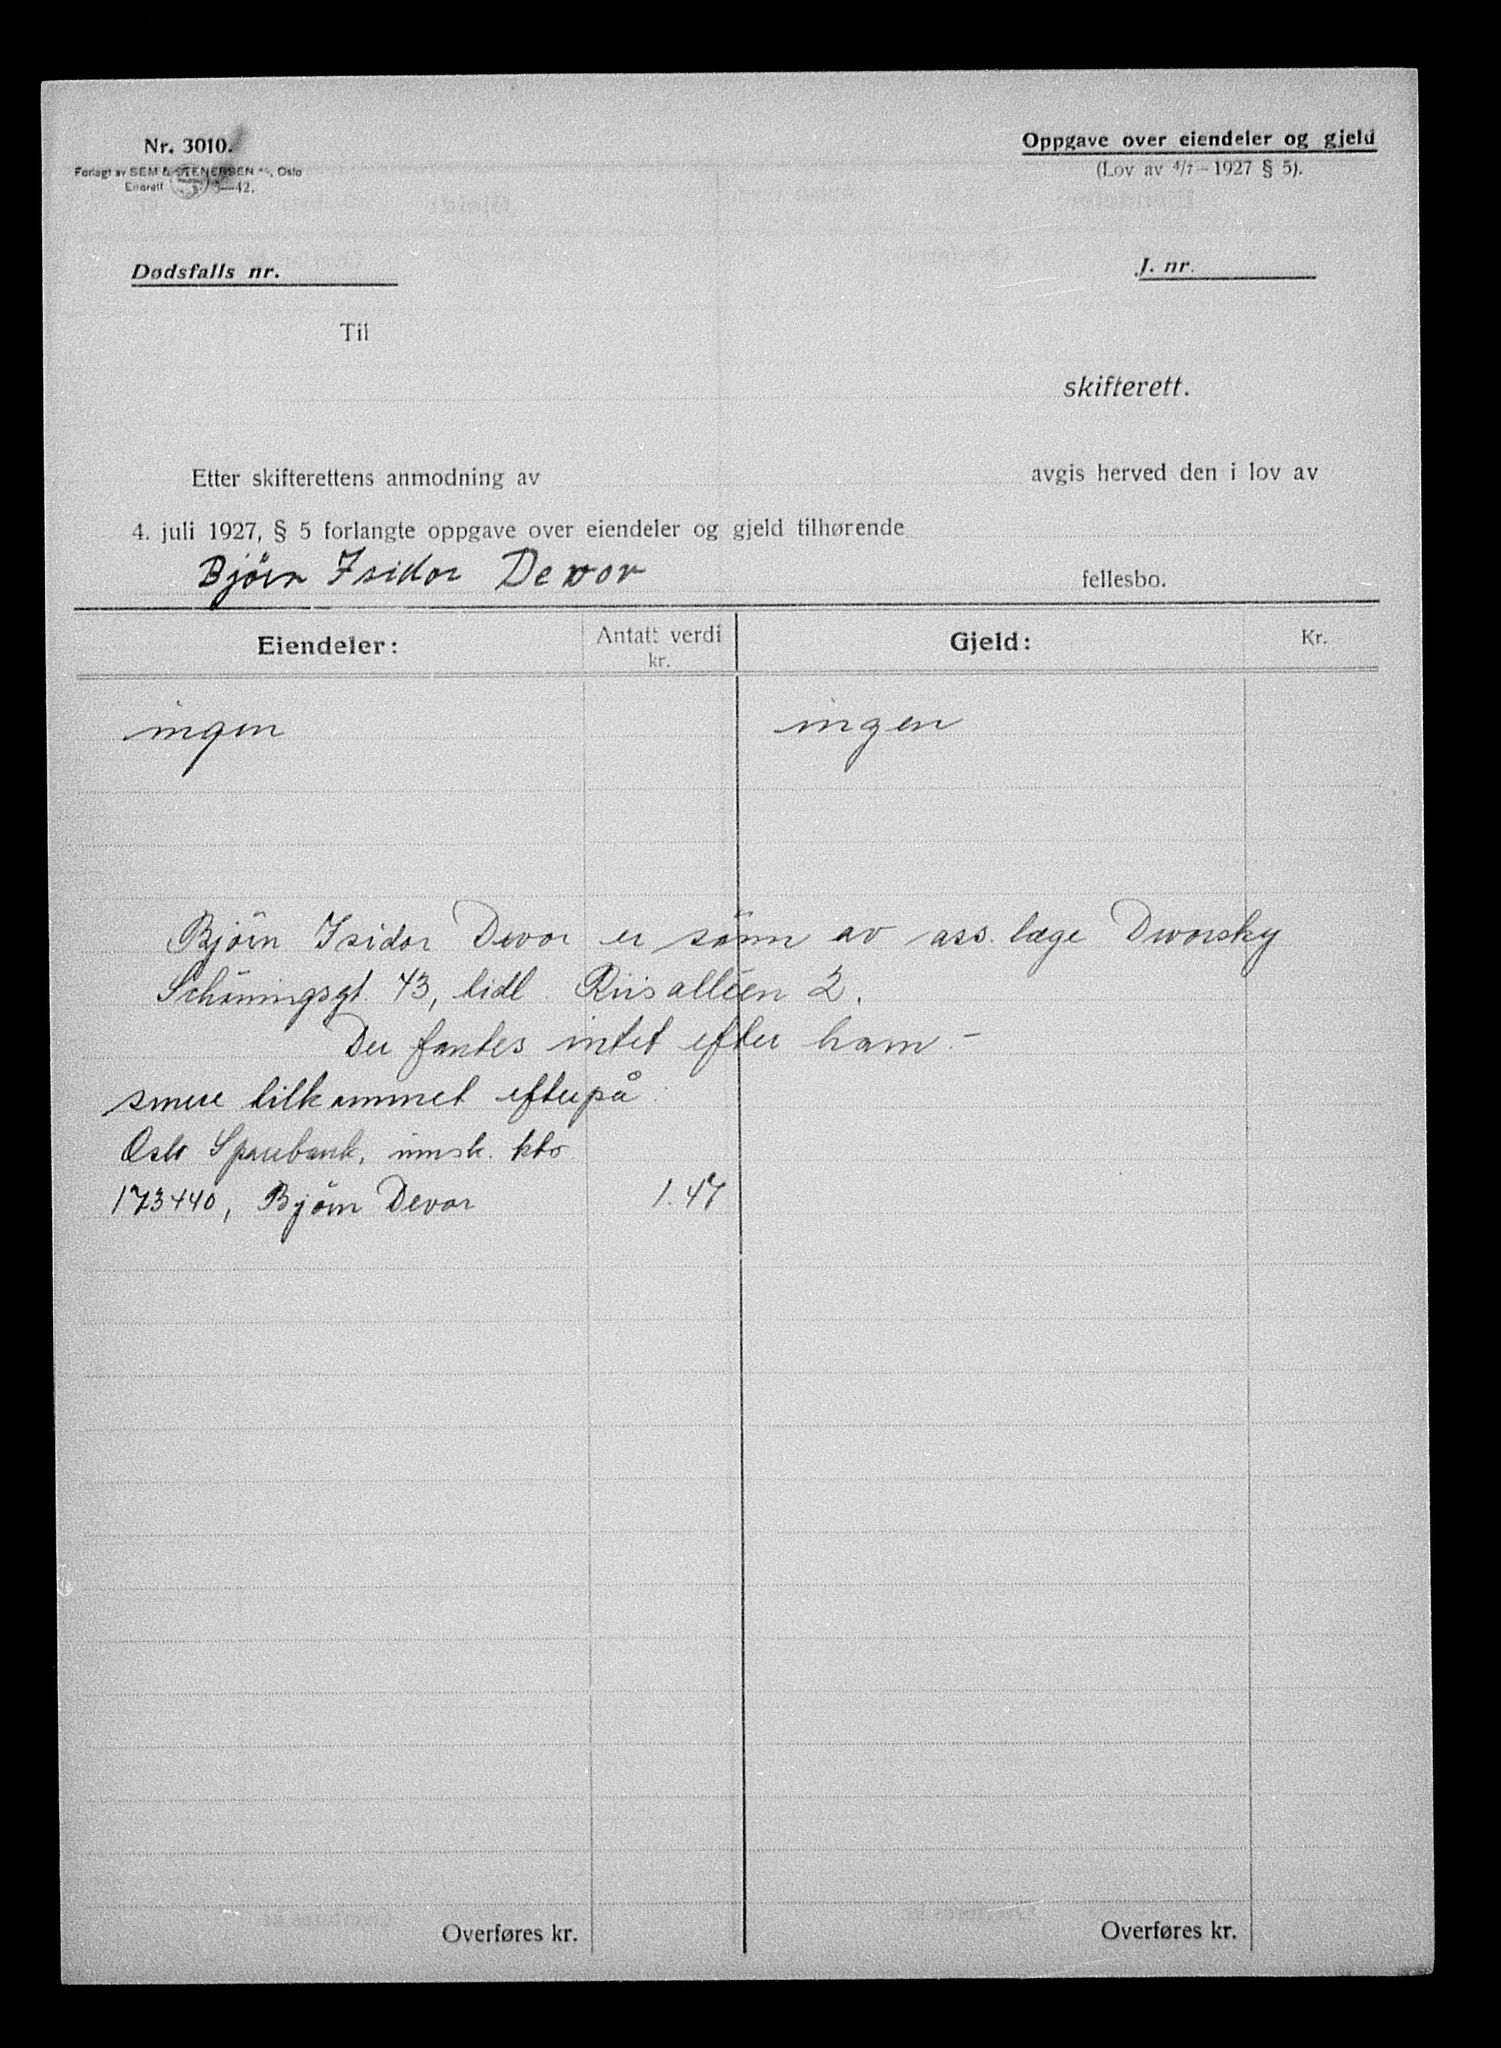 Nr. 3010.
Forlagt av SEM & STENERSEN A/S, Oslo
Enerett —42.
Oppgave over eiendeler og gjeld
(Lov av 4/7 – 1927 § 5).
Dødsfalls nr.
J. nr.
Til
skifterett.
Etter skifterettens anmodning av avgis herved den i lov av
4. juli 1927, § 5 forlangte oppgave over eiendeler og gjeld tilhørende
Bjørn Isidor Devor fellesbo.
Eiendeler: Antatt verdi kr. Gjeld: Kr.
ingen ingen
Bjørn Isidor Devor er sönn av ass. læge Dworsky
Schöningsgt. 43, tidl. Riisalléen 2.
Der fantes intet efter ham. –
senere tilkommet efterpå.
Oslo Sparebank, innsk. kto
173440, Bjørn Devor 1.47
Overføres kr. Overføres kr.